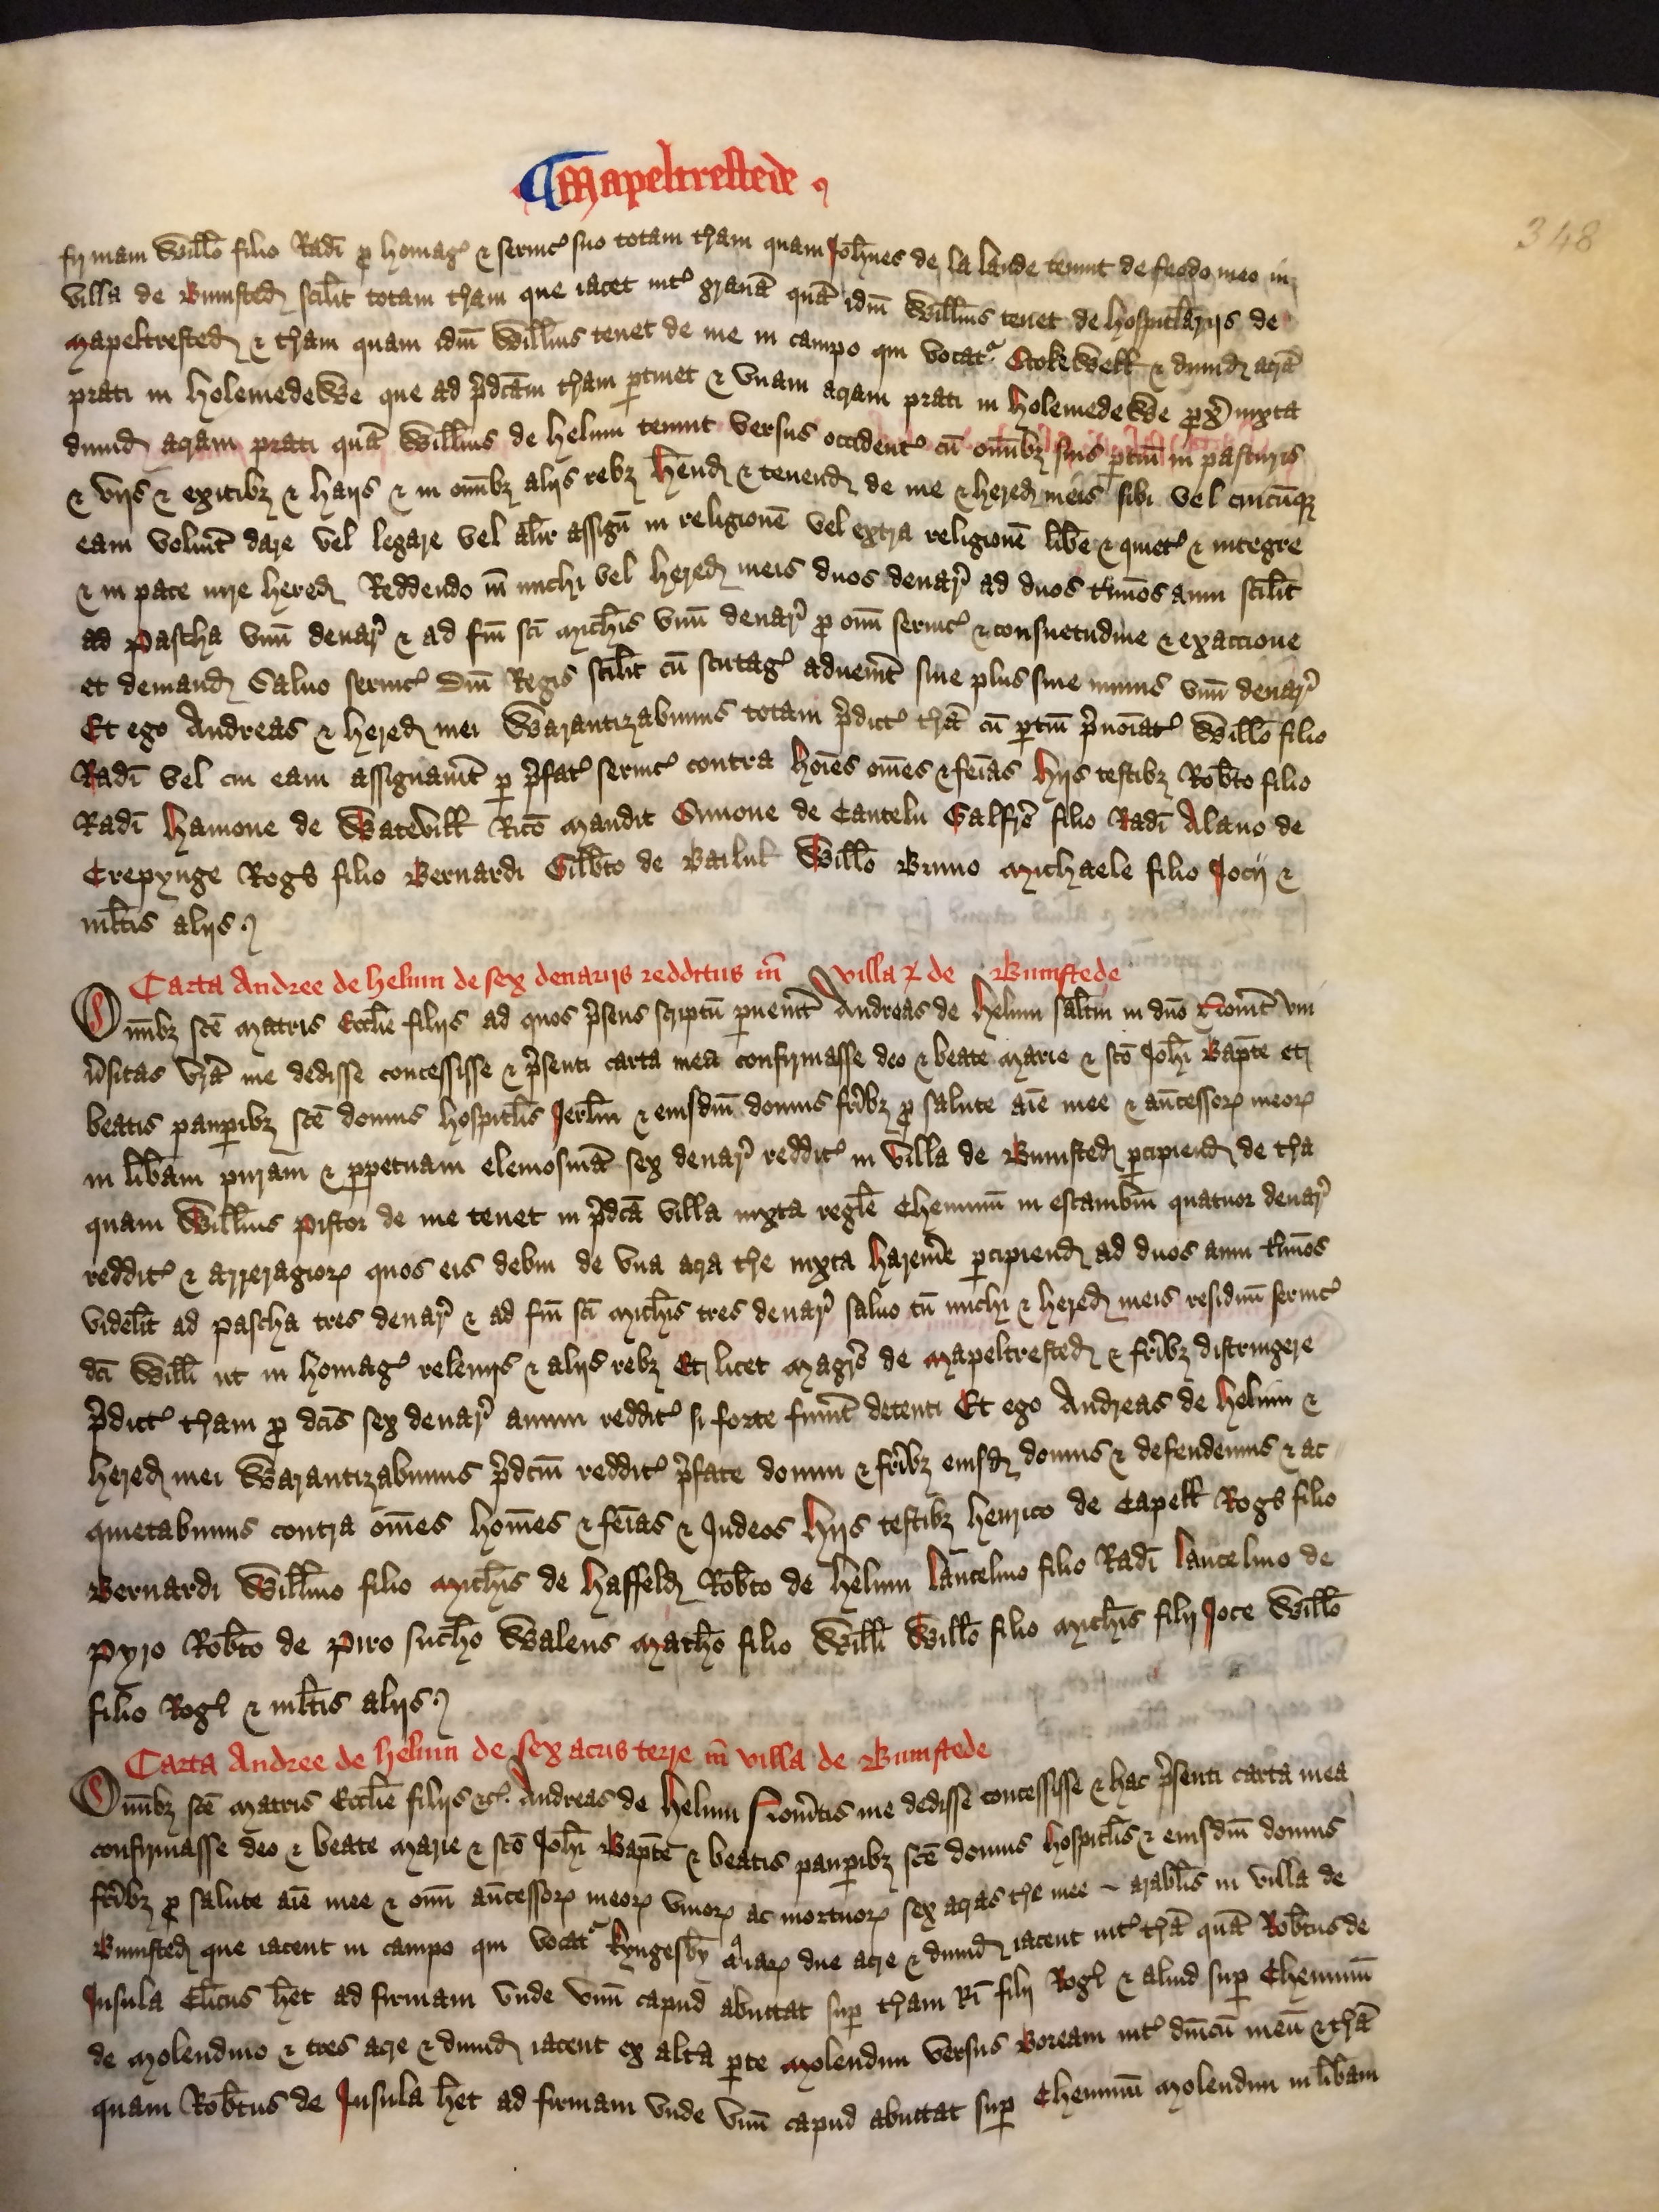 ¶ Mapeltrestede
348
firmam Willo filio Radi p homag & seruic suo totam tram quam Johnes de la lande tenuit de feodo meo in
villa de Bumsted scilit totam tram que iacet int granā quā idm Willms tenet de hospitlarijs de
Mapeltrested & tram quam idm Willms tenet de me in campo qui vocat Stokwell & dimid acrā
prati in Holemedewe que ad pdcām tram ptinet & vnam acram prati in Holemedewe px iuxta
dimid acram prati quā Willms de Helium tenuit versus occident cū omibz suis ptin in pasturis
& vijs & exitibz & haijs & in omibz alijs rebz hend & tenend de me & hered meis sibi vel cuicūqz
eam voluit dare vel legare vel alit assign in religionē vel extra religionē libe & quiete & integre
& in pace iure hered Reddendo in michi vel hered meis duos denar ad duos tmōs anni scilit
ad Pascha vnū denar & ad fm sci Michis vnū denar p omi seruic & consuetudine & exaccione
et demand Saluo seruic Dni Regis scilit cū scutag adueniit siue plus siue minus vnū denar
Et ego Andreas & hered mei Warantizabimus totam pdict trā cū ptin pnoiat Willo filio
Radi vel cui eam assignauit p pfat seruic contra hoies omes & feias Hijs testibz Robto filio
Radi Hamone de Watevill Rico Maudit Simone de Cantelu Galfre filio Radi Alano de
Crepynge Rogo filio Bernardi Gilbto de Bailul Willo Bruno Michaele filio Jocij &
mltis alijs
Carta Andree de helium de sex denarijs redditus in villa de Bumstede
Omibz sce Matris Ecclie filijs ad quos psens scriptū puenit Andreas de Helium saltm in dno Nouit vni
usitas vrā me dedisse concessisse & psenti carta mea confirmasse deo & beate Marie & sco Johi Bapte et
beatis paupibz sce domus hospitlis Jerlm & eiusdm domus fribz p salute aie mee & ancessor meor
in libam puram & ppetuam elemosinā sex denar reddit in villa de Bumsted pcipiend de tra
quam Willms Pistor de me tenet in pdcā villa iuxta regle Cheminū in escambm quatuor denar
reddit & arreragior quos eis debui de vna acra tre iuxta Haremē pcipiend ad duos anni tmōs
videlit ad Pascha tres denar & ad fm sci Michis tres denar saluo tn michi & hered meis residuū seruic
dci Willi ut in homag releuijs & alijs rebz Et licet magro de Mapeltrested & fribz distringere
pdict tram p dcis sex denar annui reddit si forte fuint detenti Et ego Andreas de Helium &
hered mei Warantizabimus pdcm reddit pfate domui & fribz eiusd domus & defendemus & ac
quietabimus contra omes homes & feias & Judeos Hijs testibz Henrico de Capell Rogo filio
Bernardi Willmo filio Michis de Haffeld Robto de Helium Lancelino filio Radi Lancelino de
Pyro Robto de Piro Walens Matho filio Willi Willo filio Michis filij Joce Willo
filio Rogi & mltis alijs
Carta Andree de helium de sex acris terre in villa de Bumstede
Omibz sce Matris Ecclie filijs &c Andreas de Helium Nouitis me dedisse concessisse & hac psenti carta mea
confirmasse deo & beate Marie & sco Johi Bapte & beatis paupibz sce domus hospitlis & eiusdm domus
fribz p salute aie mee & oim ancessor meor viuor ac mortuor sex acras tre mee arablis in villa de
Bumsted que iacent in campo qui vocat Kyngesby quar due acre & dimid iacent int trā quā Robtus de
Insula Clicus het ad firmam vnde vnū capud abuttat sup tram Ri filij Rogi & aliud sup Cheminū
de Molendino & tres acre & dimid iacent ex alta pte Molendini versus Boream int dnicū meū & trā
quam Robtus de Insula het ad firmam vnde vnū capud abuttat sup Cheminū Molendini in libam